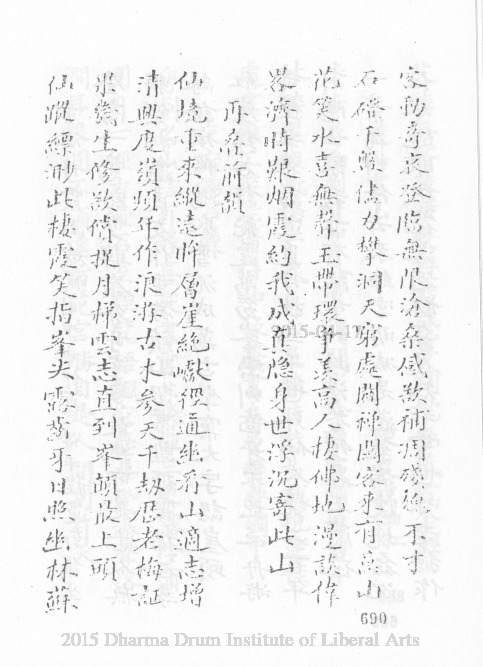 客勤奇哀登臨無限滄桑感欲補凋殘總不才
石磴千盤借力攀洞天窮處闢禪關客來有意山
花笑水喜無聲玉帶環爭羡高人棲佛地漫談偉
畧濟時艱烟霞約我成真隐身世浮沉寄此山
再疊前韻
仙境重來縱遠眸層崖絶巘徑通幽看山適志增
清興度嶺頻年作浪游古木参天千劫歷老梅証
果幾生修欲償捉月梯雲志直到峯顛最上頭
仙蹤縹渺此棲霞笑指峯尖露齒牙日照幽林蘇
690
2015-04-17
2015 Dharma Drum Institute of Liberal Arts